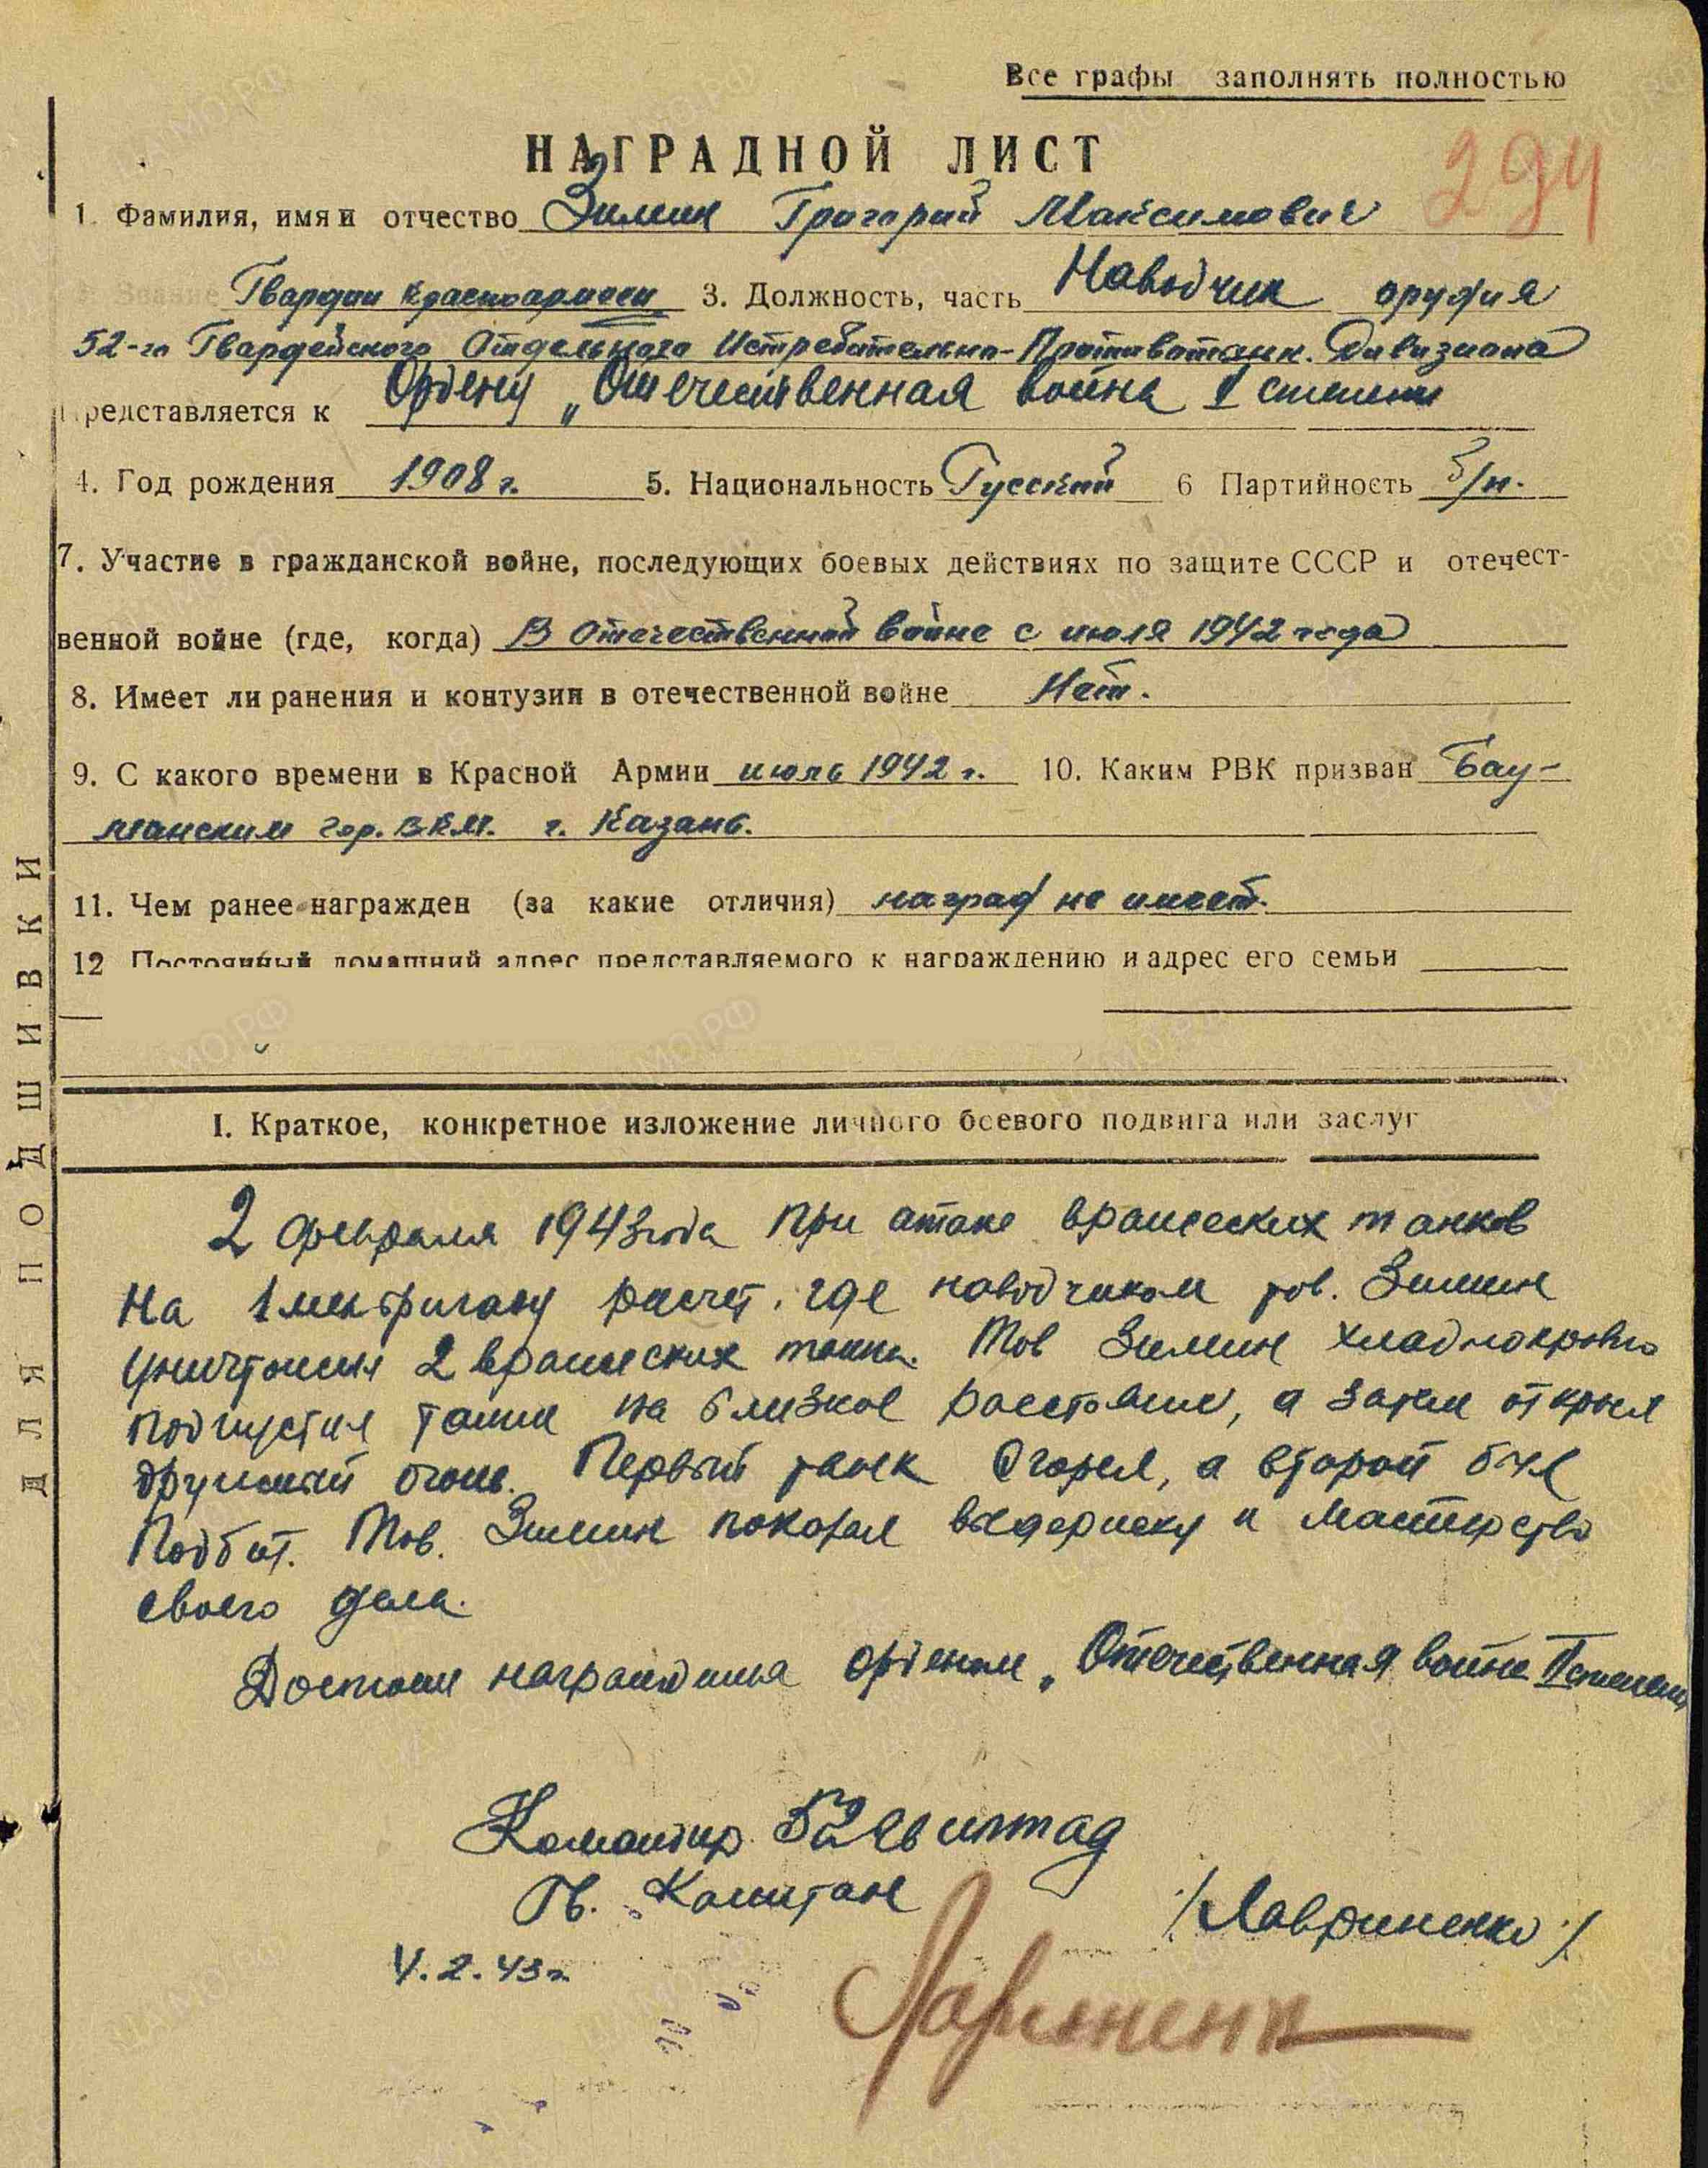 Все графы заполнять полностью
НАГРАДНОЙ ЛИСТ
294
1. Фамилия, имя и отчество Зимин Григорий Максимович
Звание Гвардии красноармеец 3. Должность, часть Наводчик орудия
52-го Гвардейского Отдельного Истребительно-Противотанк. Дивизиона
Представляется к Ордену „Отечественная война I степени
4. Год рождения 1908 г. 5. Национальность Русский 6 Партийность б/п.
7. Участие в гражданской войне, последующих боевых действиях по защите СССР и отечест-
венной войне (где, когда) В Отечественной войне с июля 1942 года
8. Имеет ли ранения и контузии в отечественной войне Нет.
9. С какого времени в Красной Армии июль 1942 г. 10. Каким РВК призван Бау-
манским гор. ВКМ. г. Казань.
11. Чем ранее награжден (за какие отличия) наград не имеет.
12 Постоянный домашний адрес представляемого к награждению и адрес его семьи
I. Краткое, конкретное изложение личного боевого подвига или заслуг
2 февраля 1943 года при атаке вражеских танков
на 1 мсбригаду расчет, где наводчиком тов. Зимин
уничтожил 2 вражеских танка. Тов Зимин хладнокровно
подпустил танки на близкое расстояние, а затем открыл
дружный огонь. Первый танк сгорел, а второй был
подбит. Тов. Зимин показал выдержку и мастерство
своего дела.
Достоин награждения орденом „Отечественная война I степени
Командир 52 гв иптад
Гв. Капитан /Лавриненко/
4.2.43 г.
ДЛЯ ПОДШИВКИ